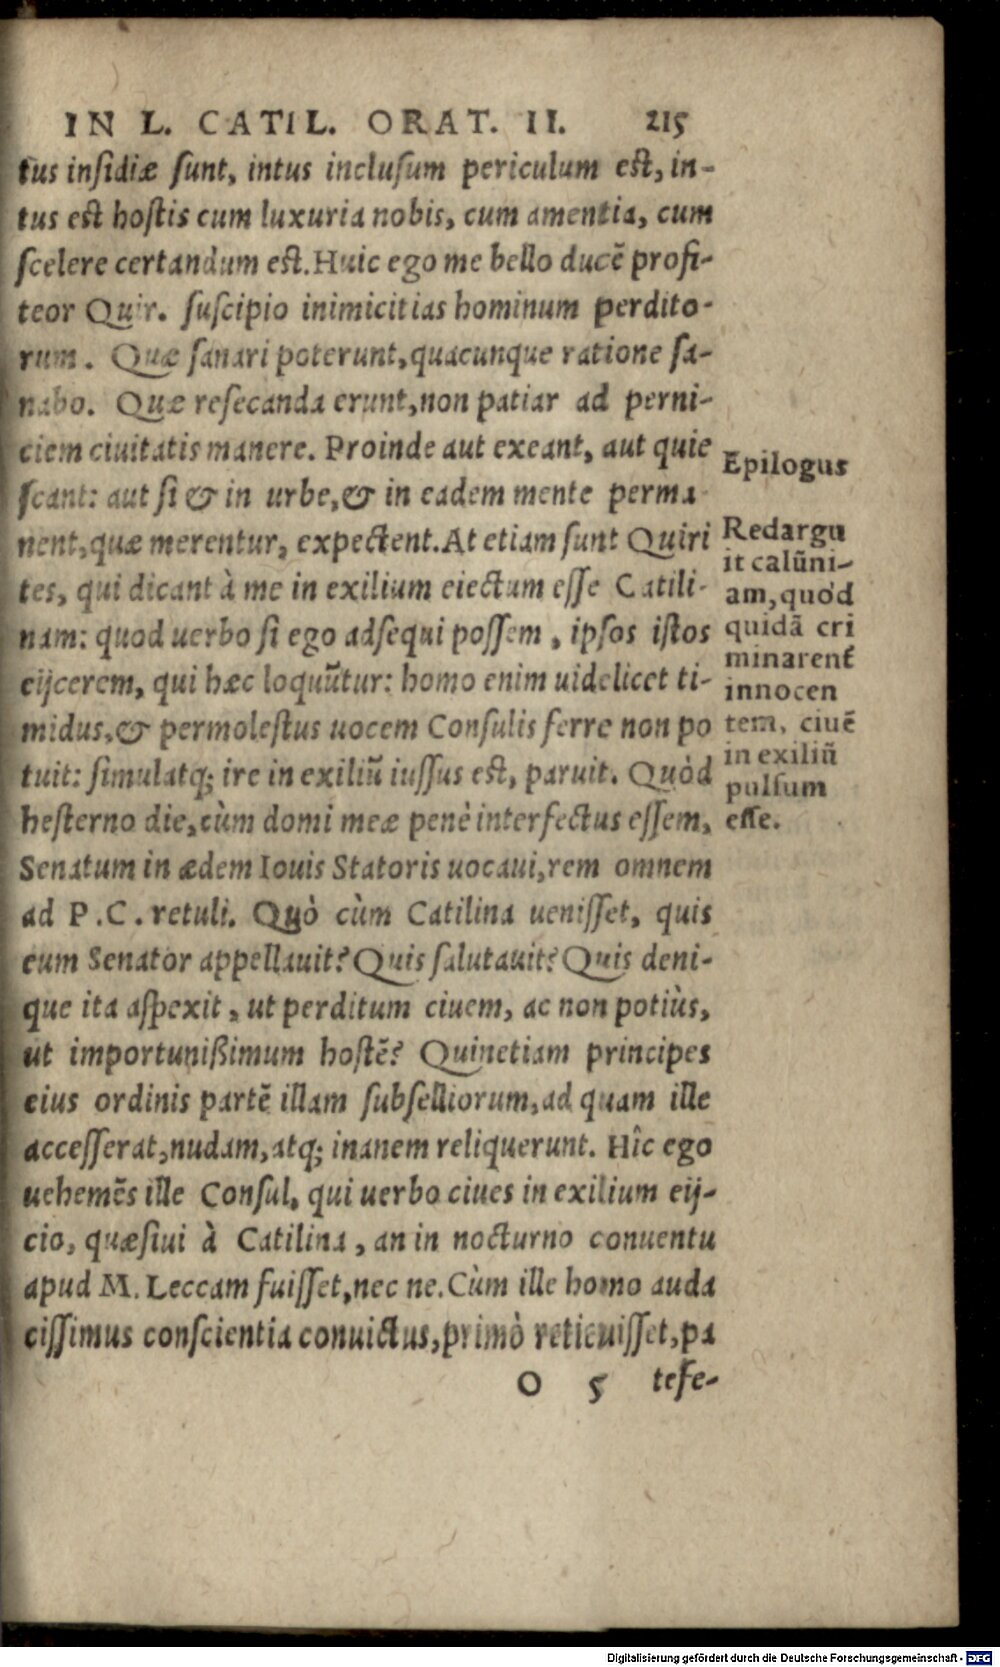 IN L. CATIL. ORAT. II. 215
tus insidiæ sunt, intus inclusum periculum est, in-
tus est hostis cum luxuria nobis, cum amentia, cum
scelere certandum est. Huic ego me bello ducē profi-
teor Quir. suscipio inimicitias hominum perdito-
rum. Quæ sanari poterunt, quacunque ratione sa-
nabo. Quæ resecanda erunt, non patiar ad perni-
ciem ciuitatis manere. Proinde aut exeant, aut quie
scant: aut si & in urbe, & in eadem mente perma
nent, quæ merentur, expectent. At etiam sunt Quiri
tes, qui dicant à me in exilium eiectum esse Catili-
nam: quod uerbo si ego adsequi possem, ipsos istos
eijcerem, qui hæc loquūtur: homo enim uidelicet ti-
midus, & permolestus uocem Consulis ferre non po
tuit: simulatq; ire in exiliū iussus est, paruit. Quòd
hesterno die, cùm domi meæ penè interfectus essem,
Senatum in ædem Iouis Statoris uocaui, rem omnem
ad P.C. retuli. Quò cùm Catilina uenisset, quis
eum Senator appellauit? Quis salutauit? Quis deni-
que ita aspexit, ut perditum ciuem, ac non potiùs,
ut importunißimum hostē? Quinetiam principes
eius ordinis partē illam subselliorum, ad quam ille
accesserat, nudam, atq; inanem reliquerunt. Hîc ego
uehemēs ille Consul, qui uerbo ciues in exilium eij-
cio, quæsiui à Catilina, an in nocturno conuentu
apud M. Leccam fuisset, nec ne. Cùm ille homo auda
cissimus conscientia conuictus, primò reticuisset, pa
O 5 tefe-
Epilogus
Redargu
it calūni-
am, quòd
quidā cri
minarent
innocen
tem, ciuē
in exiliū
pulsum
esse.
Digitalisierung gefördert durch die Deutsche Forschungsgemeinschaft - DFG